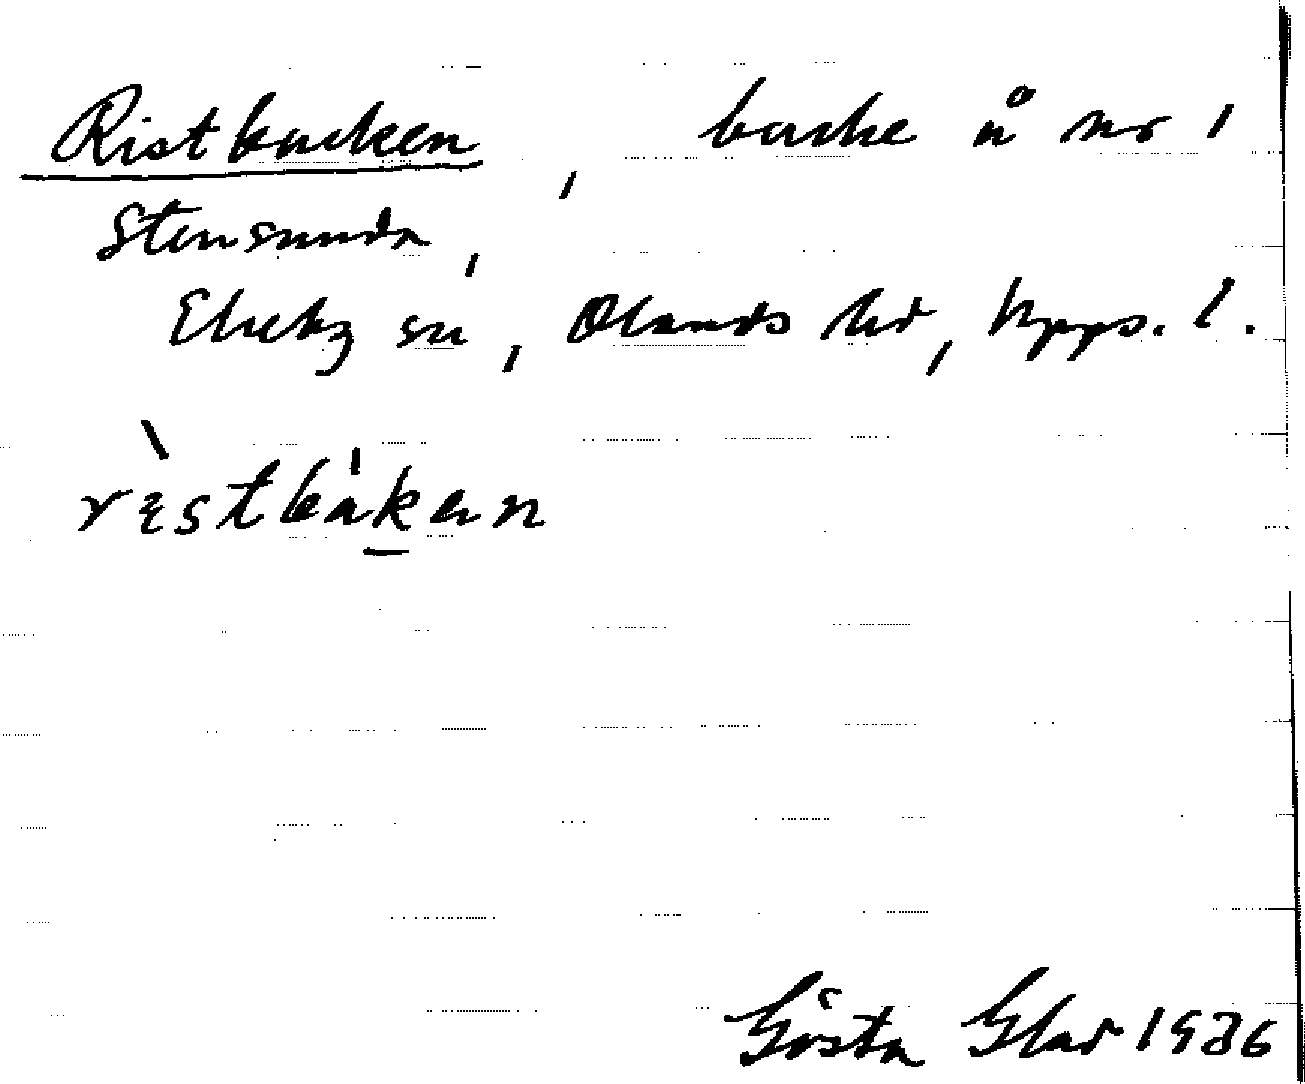 Ristbacken, backe å nr 1
Stensunda,
Ekeby sn, Olands hd, Upps. l.
rìstbáken
Gösta Glad 1936